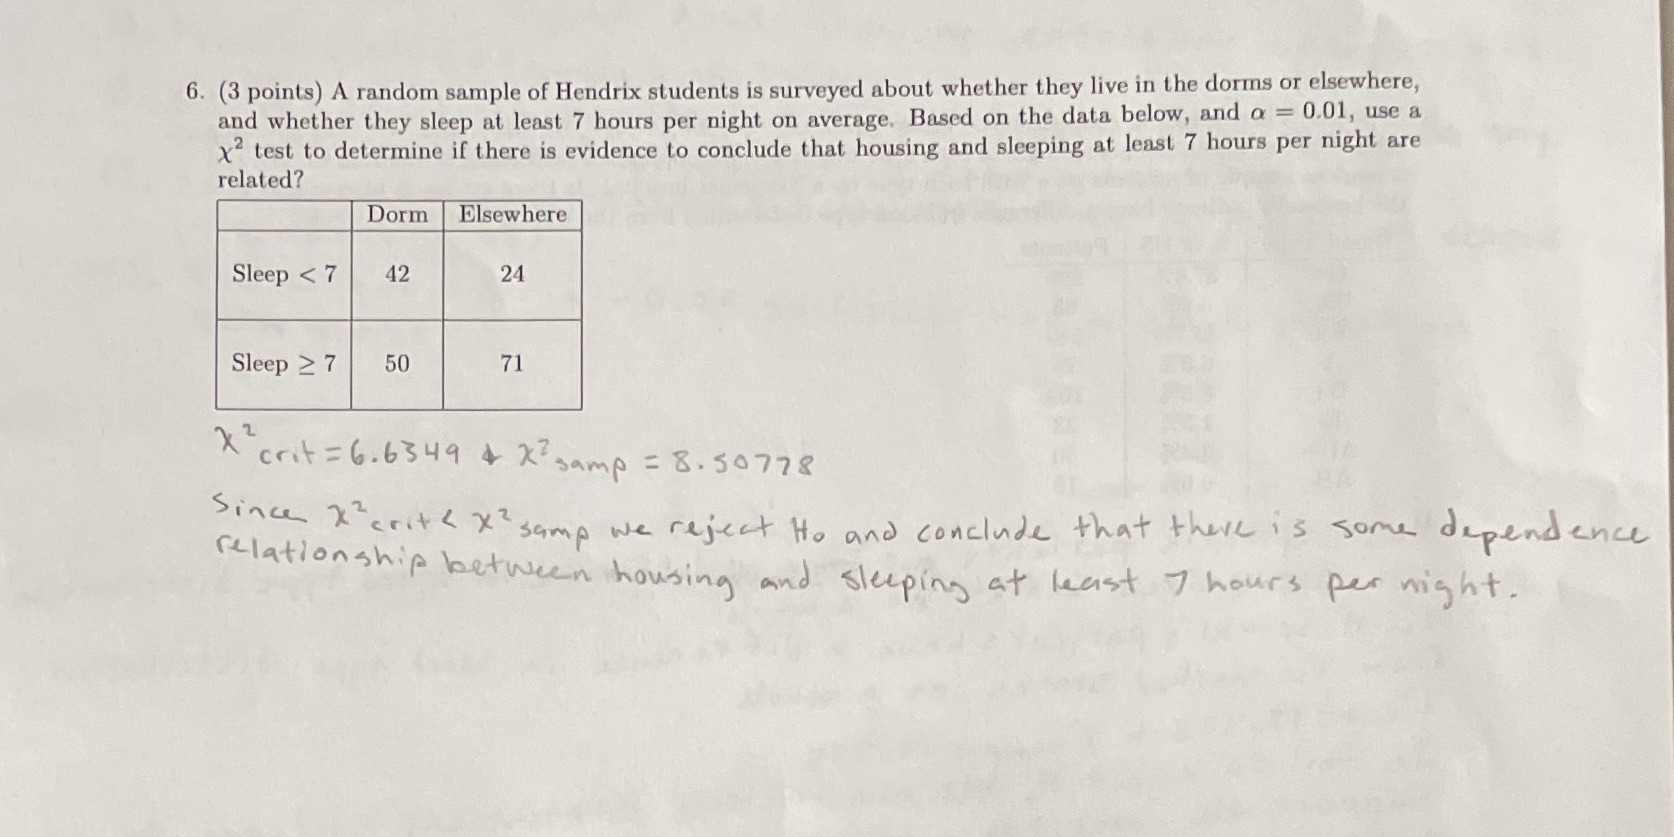 6. (3 points) A random sample of Hendrix students is surveyed about whether they live in the dorms or elsewhere,
and whether they sleep at least 7 hours per night on average. Based on the data below, and α = 0.01, use a
χ² test to determine if there is evidence to conclude that housing and sleeping at least 7 hours per night are
related?
Dorm Elsewhere
Sleep < 7 42 24
Sleep ≥ 7 50 71
χ² crit = 6.6349 & χ² samp = 8.50778
Since χ² crit < χ² samp we reject H₀ and conclude that there is some dependence
relationship between housing and sleeping at least 7 hours per night.